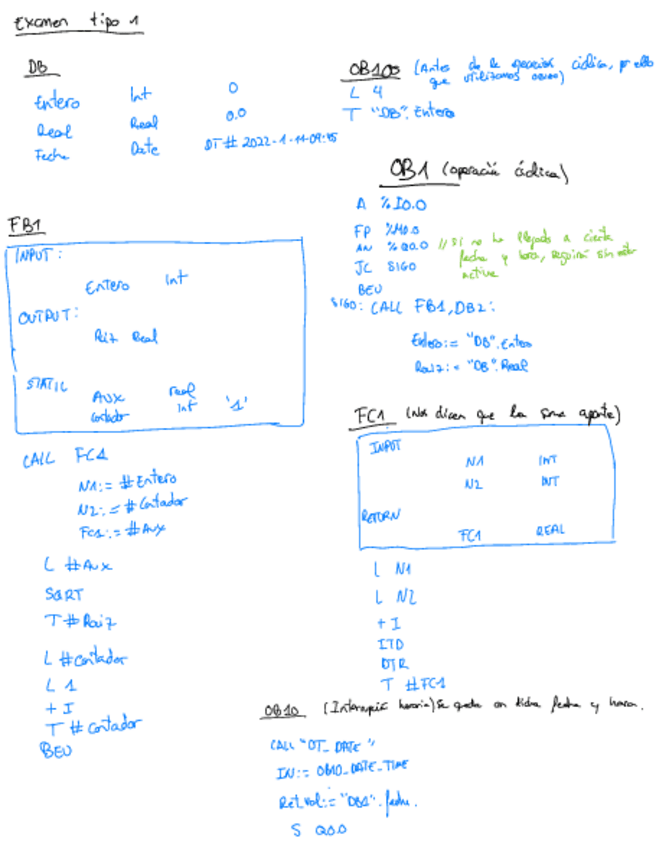 Examen tipo 1
DB
Entero Int 0
Real Real 0.0
Fecha Date DT# 2022-1-11-09:45
OB100 (Antes de la operación cíclica, por ello
que utilizamos
L 4
T "DB". Entero
OB1 (operación cíclica)
A %I0.0
FP %M0.0
AN %Q0.0 // Si no ha llegado a cierta
fecha y hora, seguirá sin estar
activa
JC SIGO
BEU
SIGO: CALL FB1, DB2:
Entero:= "DB".Entero
Raiz:= "DB".Real
FB1
INPUT:
Entero Int
OUTPUT:
Raiz Real
STATIC
Aux real
Contador Int '1'
CALL FC1
N1:= #Entero
N2:= #Contador
FC1:= #Aux
L #Aux
SQRT
T #Raiz
L #Contador
L 1
+ I
T #Contador
BEU
FC1 (Nos dicen que la suma aparte)
INPUT
N1 INT
N2 INT
RETURN
FC1 REAL
L N1
L N2
+ I
ITD
DTR
T #FC1
OB10 (Interrupción horaria) Se queda en dicha fecha y hora.
CALL "DT_DATE"
IN:= OB10_DATE_TIME
Ret_val:= "DB1".fecha.
S Q0.0